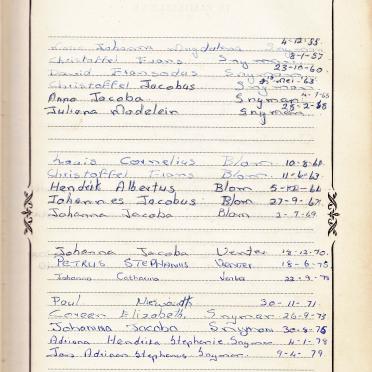 Johanna Magdalena Snyman 4-12-55
Christoffel Frans Snyman 8-1-57
David Fransadus Snyman 23-10-60
Christoffel Jacobus Snyman -63
Anna Jacoba Snyman
Juliana Madelein Snyman 28-2-68
Louis Cornelius Blom 10-8-60
Christoffel Frans Blom 11-6-63
Hendrik Albertus Blom 5-12-64
Johannes Jacobus Blom 27-9-67
Johanna Jacoba Blom 2-7-69
Johanna Jacoba Venter 18-12-70
PETRUS STEPHANUS Venter 18-6-75
Johanna Catharina Venter 22-9-78
Paul 30-11-71
Coreen Elizabeth Snyman 26-9-73
Johanna Jacoba Snyman 30-8-76
Adriana Hendrika Stephanie Snyman 4-1-78
Jan Adriaan Stephanus Snyman 9-4-79